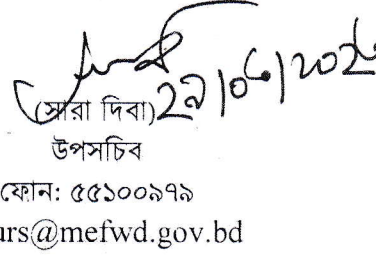 ২৯/০৬/২০২৬
(সারা দিবা)
উপসচিব
ফোন: ৫৫১০০৯৭৯
urs@mefwd.gov.bd